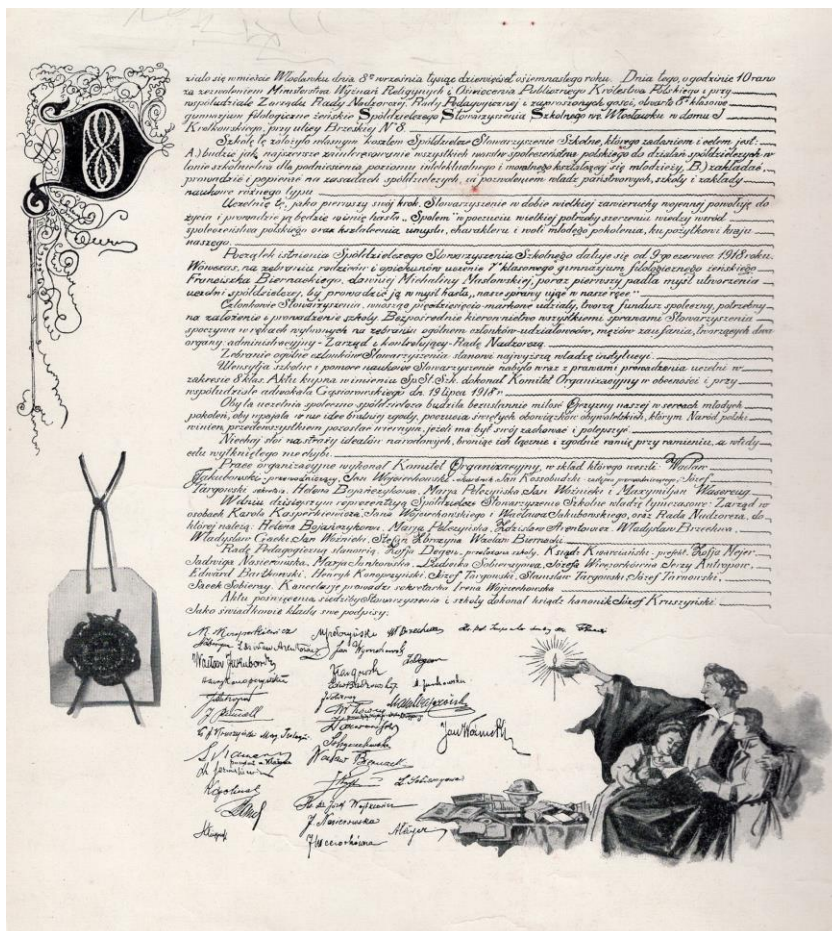 D
ziało się w mieście Włocławku dnia 8go września tysiąc dziewięćset osiemnastego roku. Dnia tego, o godzinie 10 rano
za zezwoleniem Ministerstwa Wyznań Religijnych i Oświecenia Publicznego Królestwa Polskiego i przy
współudziale Zarządu Rady Nadzorczej, Rady Pedagogicznej i zaproszonych gości, otwarto 8o klasowe
gimnazjum filologiczne żeńskie Spółdzielczego Stowarzyszenia Szkolnego we Włocławku w domu J
Krolkowskiego, przy ulicy Brzeskiej No 8.
Szkołę tę założyło własnym kosztem Spółdzielcze Stowarzyszenie Szkolne, którego zadaniem i celem jest:
A.) budzić jak najszersze zainteresowanie wszystkich warstw społeczeństwa polskiego do działań spółdzielczych w
łonie szkolnictwa dla podniesienia poziomu intelektualnego i moralnego kształcącej się młodzieży, B.) zakładać,
prowadzić i popierać na zasadach spółdzielczych, za pozwoleniem władz państwowych, szkoły i zakłady
naukowe różnego typu.
Uczelnię tę, jako pierwszy swój krok, Stowarzyszenie w dobie wielkiej zawieruchy wojennej powołuje do
życia i prowadzić ją będzie w imię hasła „Społem” w poczuciu wielkiej potrzeby szerzenia wiedzy wśród
społeczeństwa polskiego oraz kształcenia umysłu, charakteru i woli młodego pokolenia, ku pożytkowi kraju
naszego.
Początek istnienia Spółdzielczego Stowarzyszenia Szkolnego datuje się od 9-go czerwca 1918 roku.
Wówczas, na zebraniu rodziców i opiekunów uczenic 7o klasowego gimnazjum filologicznego żeńskiego
Franciszka Biernackiego, dawniej Michaliny Masłowskiej, poraz pierwszy padła myśl utworzenia
uczelni spółdzielczej, by prowadzić ją w myśl hasła „nasze sprawy ująć w nasze ręce”.
Członkowie Stowarzyszenia, wnosząc pięćdziesięcio-markowe udziały, tworzą fundusz społeczny, potrzebny
na założenie i prowadzenie szkoły. Bezpośrednie kierownictwo wszystkiemi sprawami Stowarzyszenia
spoczywa w rękach wybranych na zebraniu ogólnem członków-udziałowców, mężów zaufania, tworzących dwa
organy: administracyjny - Zarząd i kontrolujący - Radę Nadzorczą.
Zebranie ogólne członków Stowarzyszenia stanowi najwyższą władzę instytucji.
Utensylja szkolne i pomoce naukowe Stowarzyszenie nabyło wraz z prawami prowadzenia uczelni w
zakresie 8 klas. Aktu kupna w imieniu Sp. St. Szk. dokonał Komitet Organizacyjny w obecności i przy
współudziale adwokata Gąsiorowskiego dn. 19 lipca 1918 r.
Oby ta uczelnia społeczno-spółdzielcza budziła bezustannie miłość Ojczyzny naszej w sercach młodych
pokoleń, oby wpajała w nie ideę bratniej zgody, poczucia świętych obowiązków obywatelskich, którym Naród polski
winien przedewszystkiem pozostać wiernym, jeżeli ma byt swój zachować i polepszyć.
Niechaj stoi na straży ideałów narodowych, broniąc ich łącznie i zgodnie ramię przy ramieniu, a wtedy
celu wytkniętego nie chybi.
Prace organizacyjne wykonał Komitet Organizacyjny, w skład którego weszli: Wacław
Jakubowski - przewodniczący, Jan Wojciechowski - Jan Kossobudzki - zastępca przewodniczącego, Józef
Targowski sekretarz, Helena Bojańczykowa, Marja Pełczyńska, Jan Woźnicki i Maxymiljan Wasercug
W dniu dzisiejszym reprezentują Spółdzielcze Stowarzyszenie Szkolne władze tymczasowe: Zarząd w
osobach Karola Kasperkiewicza, Jana Wojciechowskiego i Wacława Jakubowskiego, oraz Rada Nadzorcza, do
której należą: Helena Bojańczykowa, Marja Pełczyńska, Zdzisław Arentowicz, Władysław Brzechwa,
Władysław Gacki, Jan Woźnicki, Stefan Zbrożyna Wacław Biernacki.
Radę Pedagogiczną stanowią: Zofja Degen - przełożona szkoły, Ksiądz Kwarciański - prefekt, Zofja Mejer,
Jadwiga Nasierowska, Marja Jankowska, Ludwika Sobierajowa, Józefa Wieczorkówna Jerzy Antropow,
Edward Bartkowski, Henryk Konopczyński, Józef Targowski, Stanisław Targowski, Józef Tarnowski,
Jacek Sobieraj. Kancelarję prowadzi sekretarka Irena Wojciechowska
Aktu poświęcenia siedziby Stowarzyszenia i szkoły dokonał ksiądz kanonik Józef Kruszyński.
Jako świadkowie kładą swe podpisy:
Zdzisław Arentowicz
Wacław Jakubowski
Z. Degen
M. Jankowska
Jan Woźnicki
L. Sobierajowa
J. Nasierowska
J. Wieczorkówna